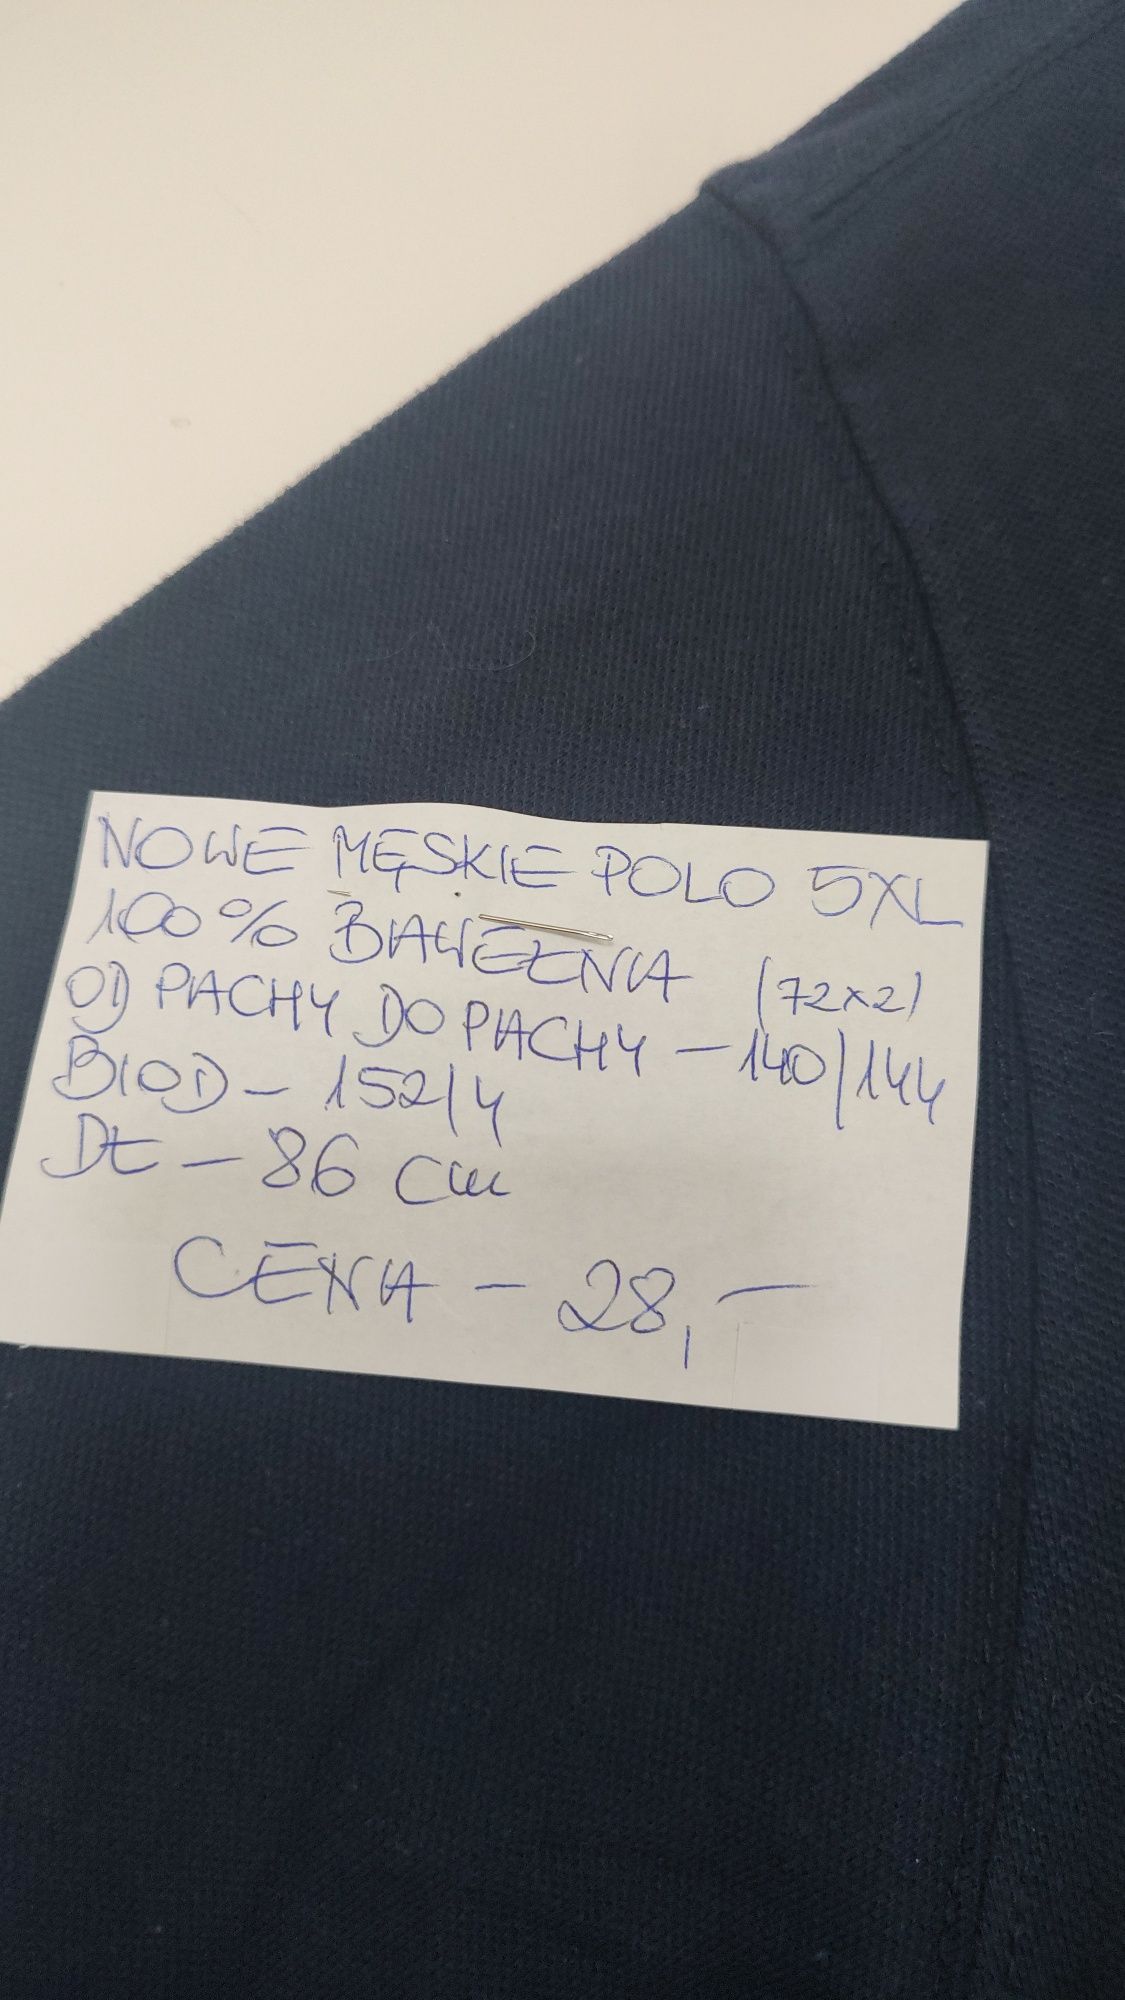 NOWE MĘSKIE POLO 5XL
100% BAWEŁNA
(72x2)
OD PACHY DO PACHY - 140/144
BIOD - 152/4
DŁ - 86 cm
CENA - 28,-